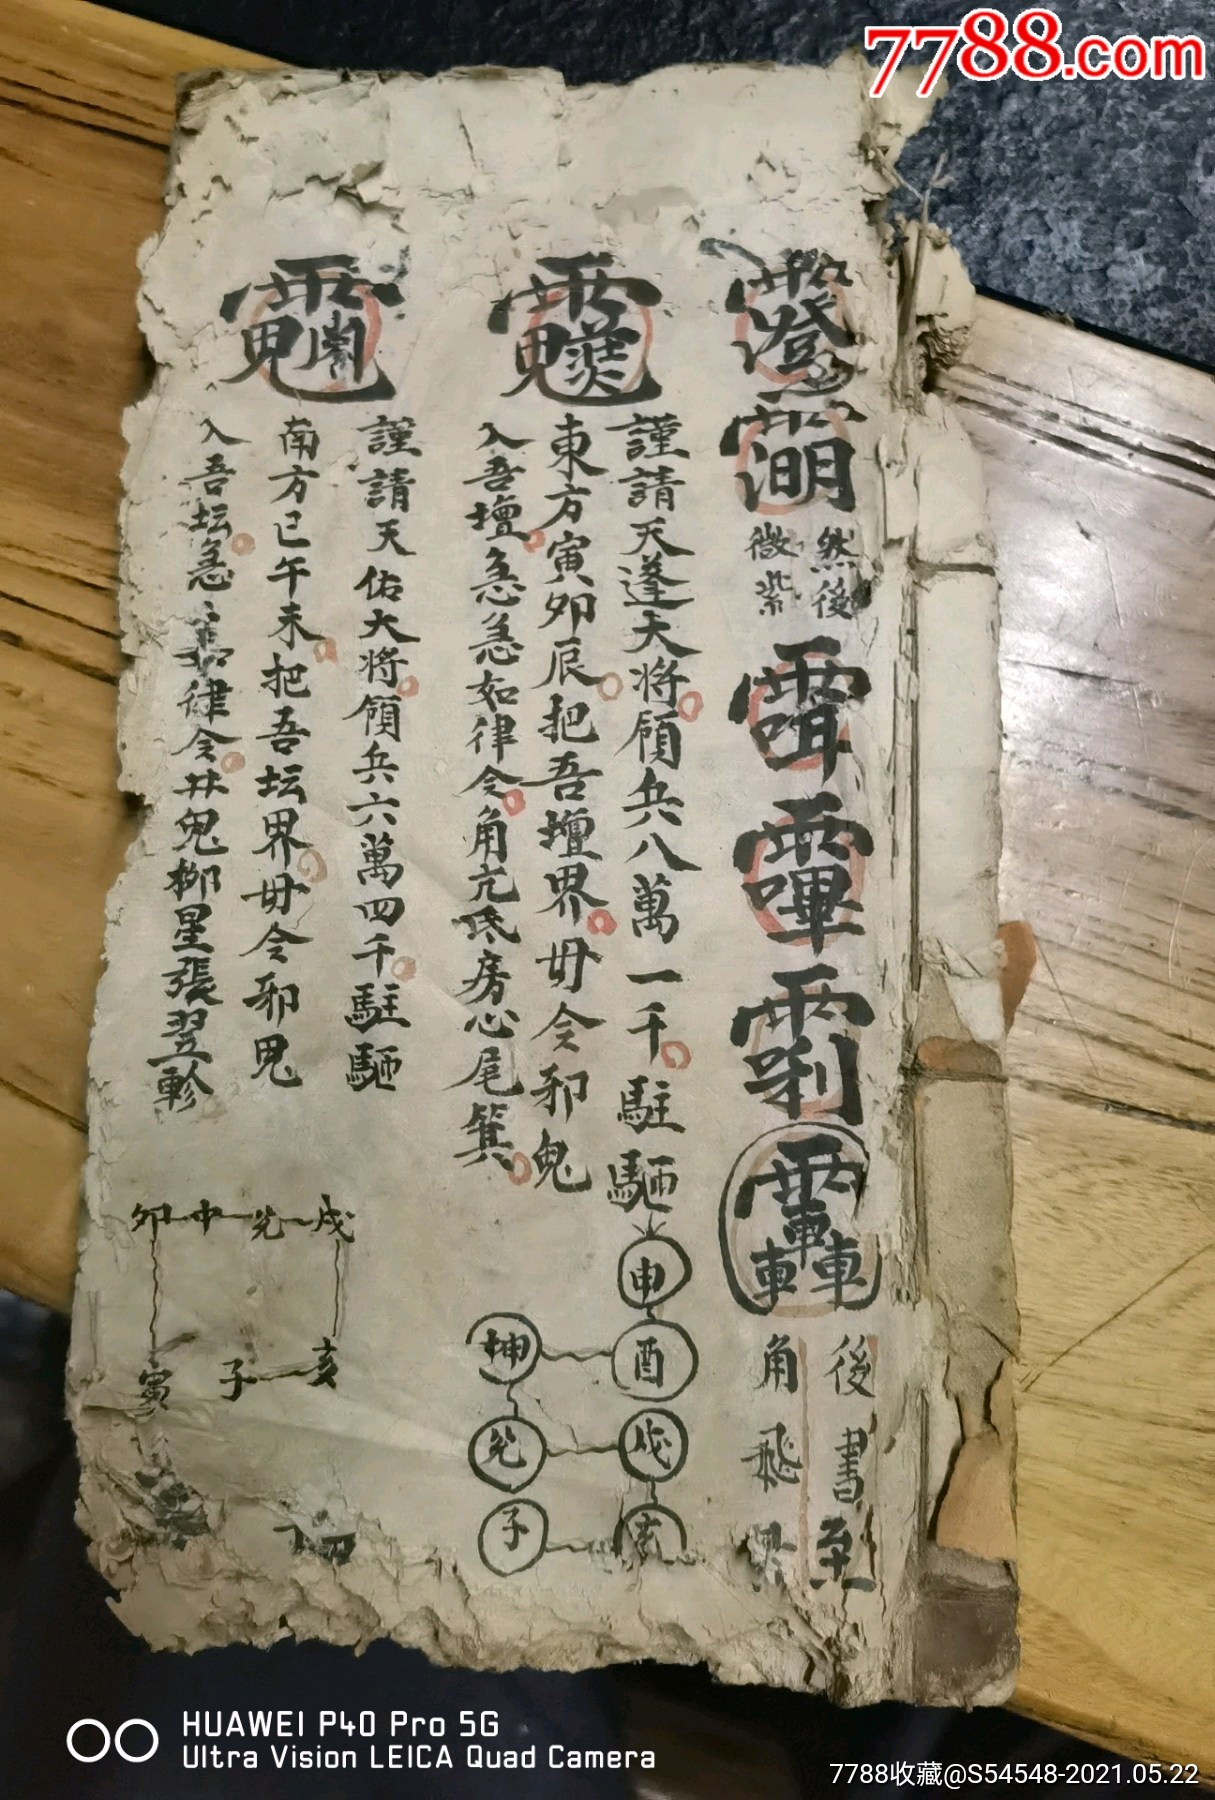 7788.com
然後
紫微
後書至
角飛
謹請天蓬大将領兵八萬一千駐
東方寅卯辰把吾壇界毋令邪鬼
入吾壇急急如律令角亢氐房心尾箕
謹請天佑大将領兵六萬四千駐
南方巳午未把吾坛界毋令邪鬼
入吾坛急律令井鬼柳星張翌軫
申
酉
坤
戌
兑
亥
子
戌兑中卯
亥子
寅
HUAWEI P40 Pro 5G
Ultra Vision LEICA Quad Camera
7788收藏@S54548-2021.05.22